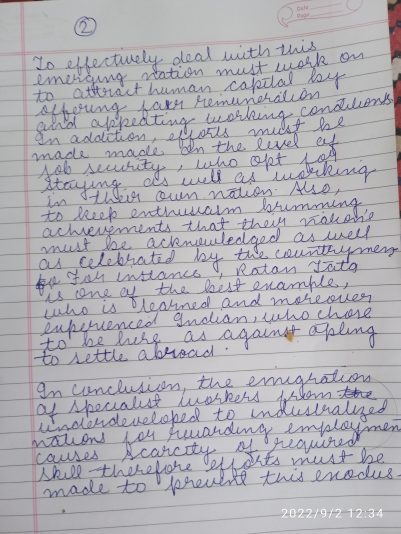 2
Date
Page
To effectively deal with this
emerging nation must work on
to attract human capital by
offering fair remuneration
and appeating working conditions
In addition, efforts must be
made made on the level of
job security, who opt for
staying as well as working
in their own nation. Also,
to keep enthusiasm brimming,
achievements that their nation's
must be acknowledged as well
as celebrated by the countrymen
For instance, Ratan Tata
is one of the best example,
who is learned and moreover
experienced Indian, who chose
to be here as against opting
to settle abroad.
In conclusion, the emigration
of specialist workers from the
underdeveloped to industralized
nations for rewarding employmen
causes scarcity of required
skill therefore efforts must be
made to prevent this exodus.
2022/9/2 12:34